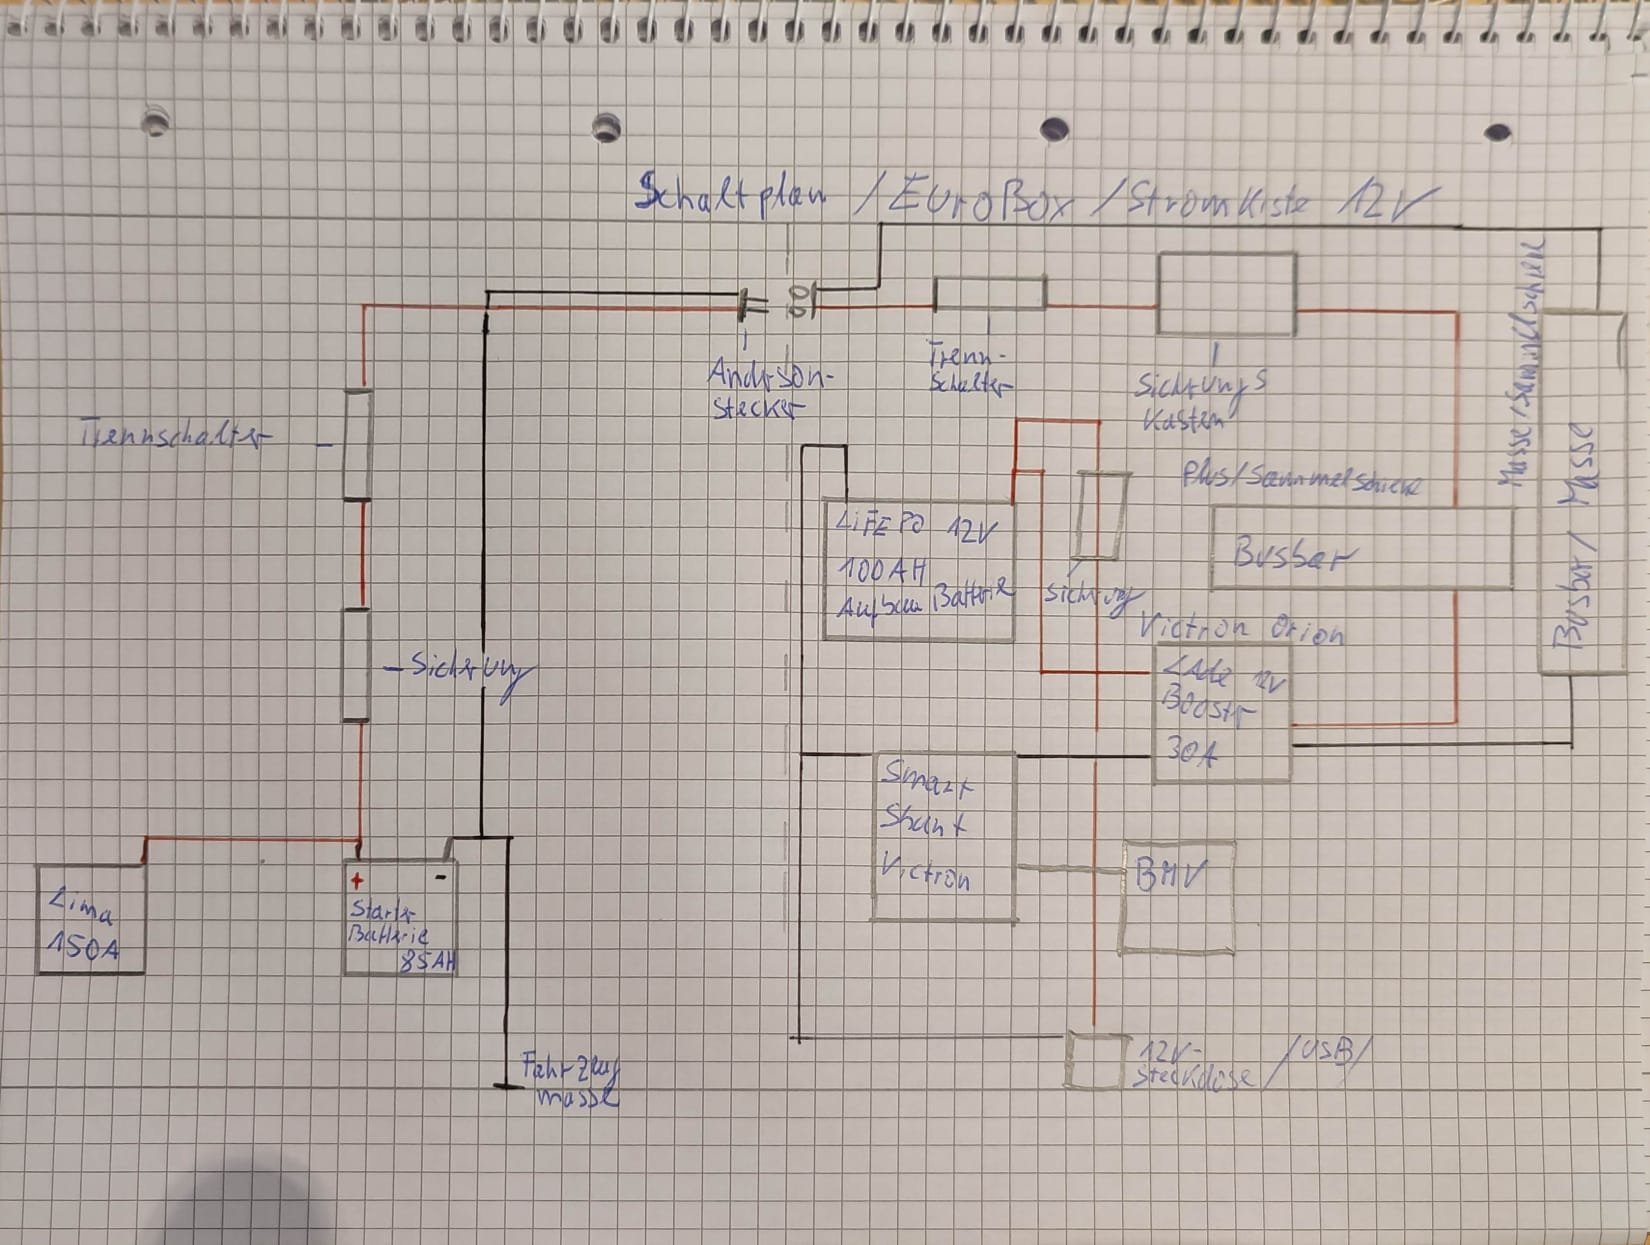 Schaltplan / EuroBox / Stromkiste 12V
Andrson-
stecker
Trenn-
Schalter
Sichrungs
Kasten
Masse/Sammelschiene
Busbar/ Masse
Trennschalter
Plus/Sammelschiene
Busbar
LiFEPO 12V
100AH
Aufbau Batterie
Sichrung
Victron Orion
Lade 12V
Boostr
30A
Sicherung
Smart
Shunt
Victron
BMV
+
-
Starter
Batterie
85AH
Lima
150A
Fahrzeug
masse
12V-
Steckdose /USB/